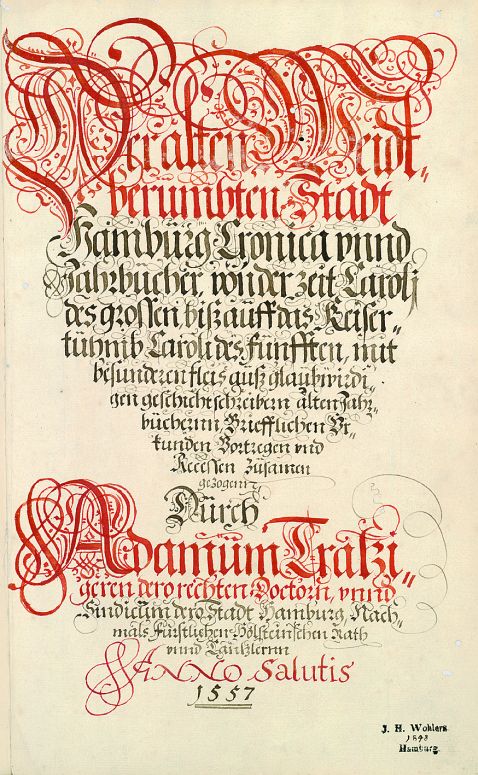 Der alten Weidt„
berumbten Stadt
Hamburg Cronica vnnd
Jahrbücher, von der zeit Caroli
des grossen, biß auff das Keiser„
tuhmb Caroli des Fünfften, mit
besunderen fleis auß glaubwirdi„
gen geschichtschreibern alten Jahr„
büchernn, Briefflichen Vr„
kunden Vortregen vnd
Recessen zusamen
gezogenn
Dürch
Adamüm Tratzi„
geren dero rechten Doctorn, vnnd
Sindicum dero Stadt Hamburg, Nach„
mals Fürstlichen Holsteinschen Rath
vnnd Cantzlernn
ANNO Salutis
1557
J. H. Wohlers
1848
Hamburg.